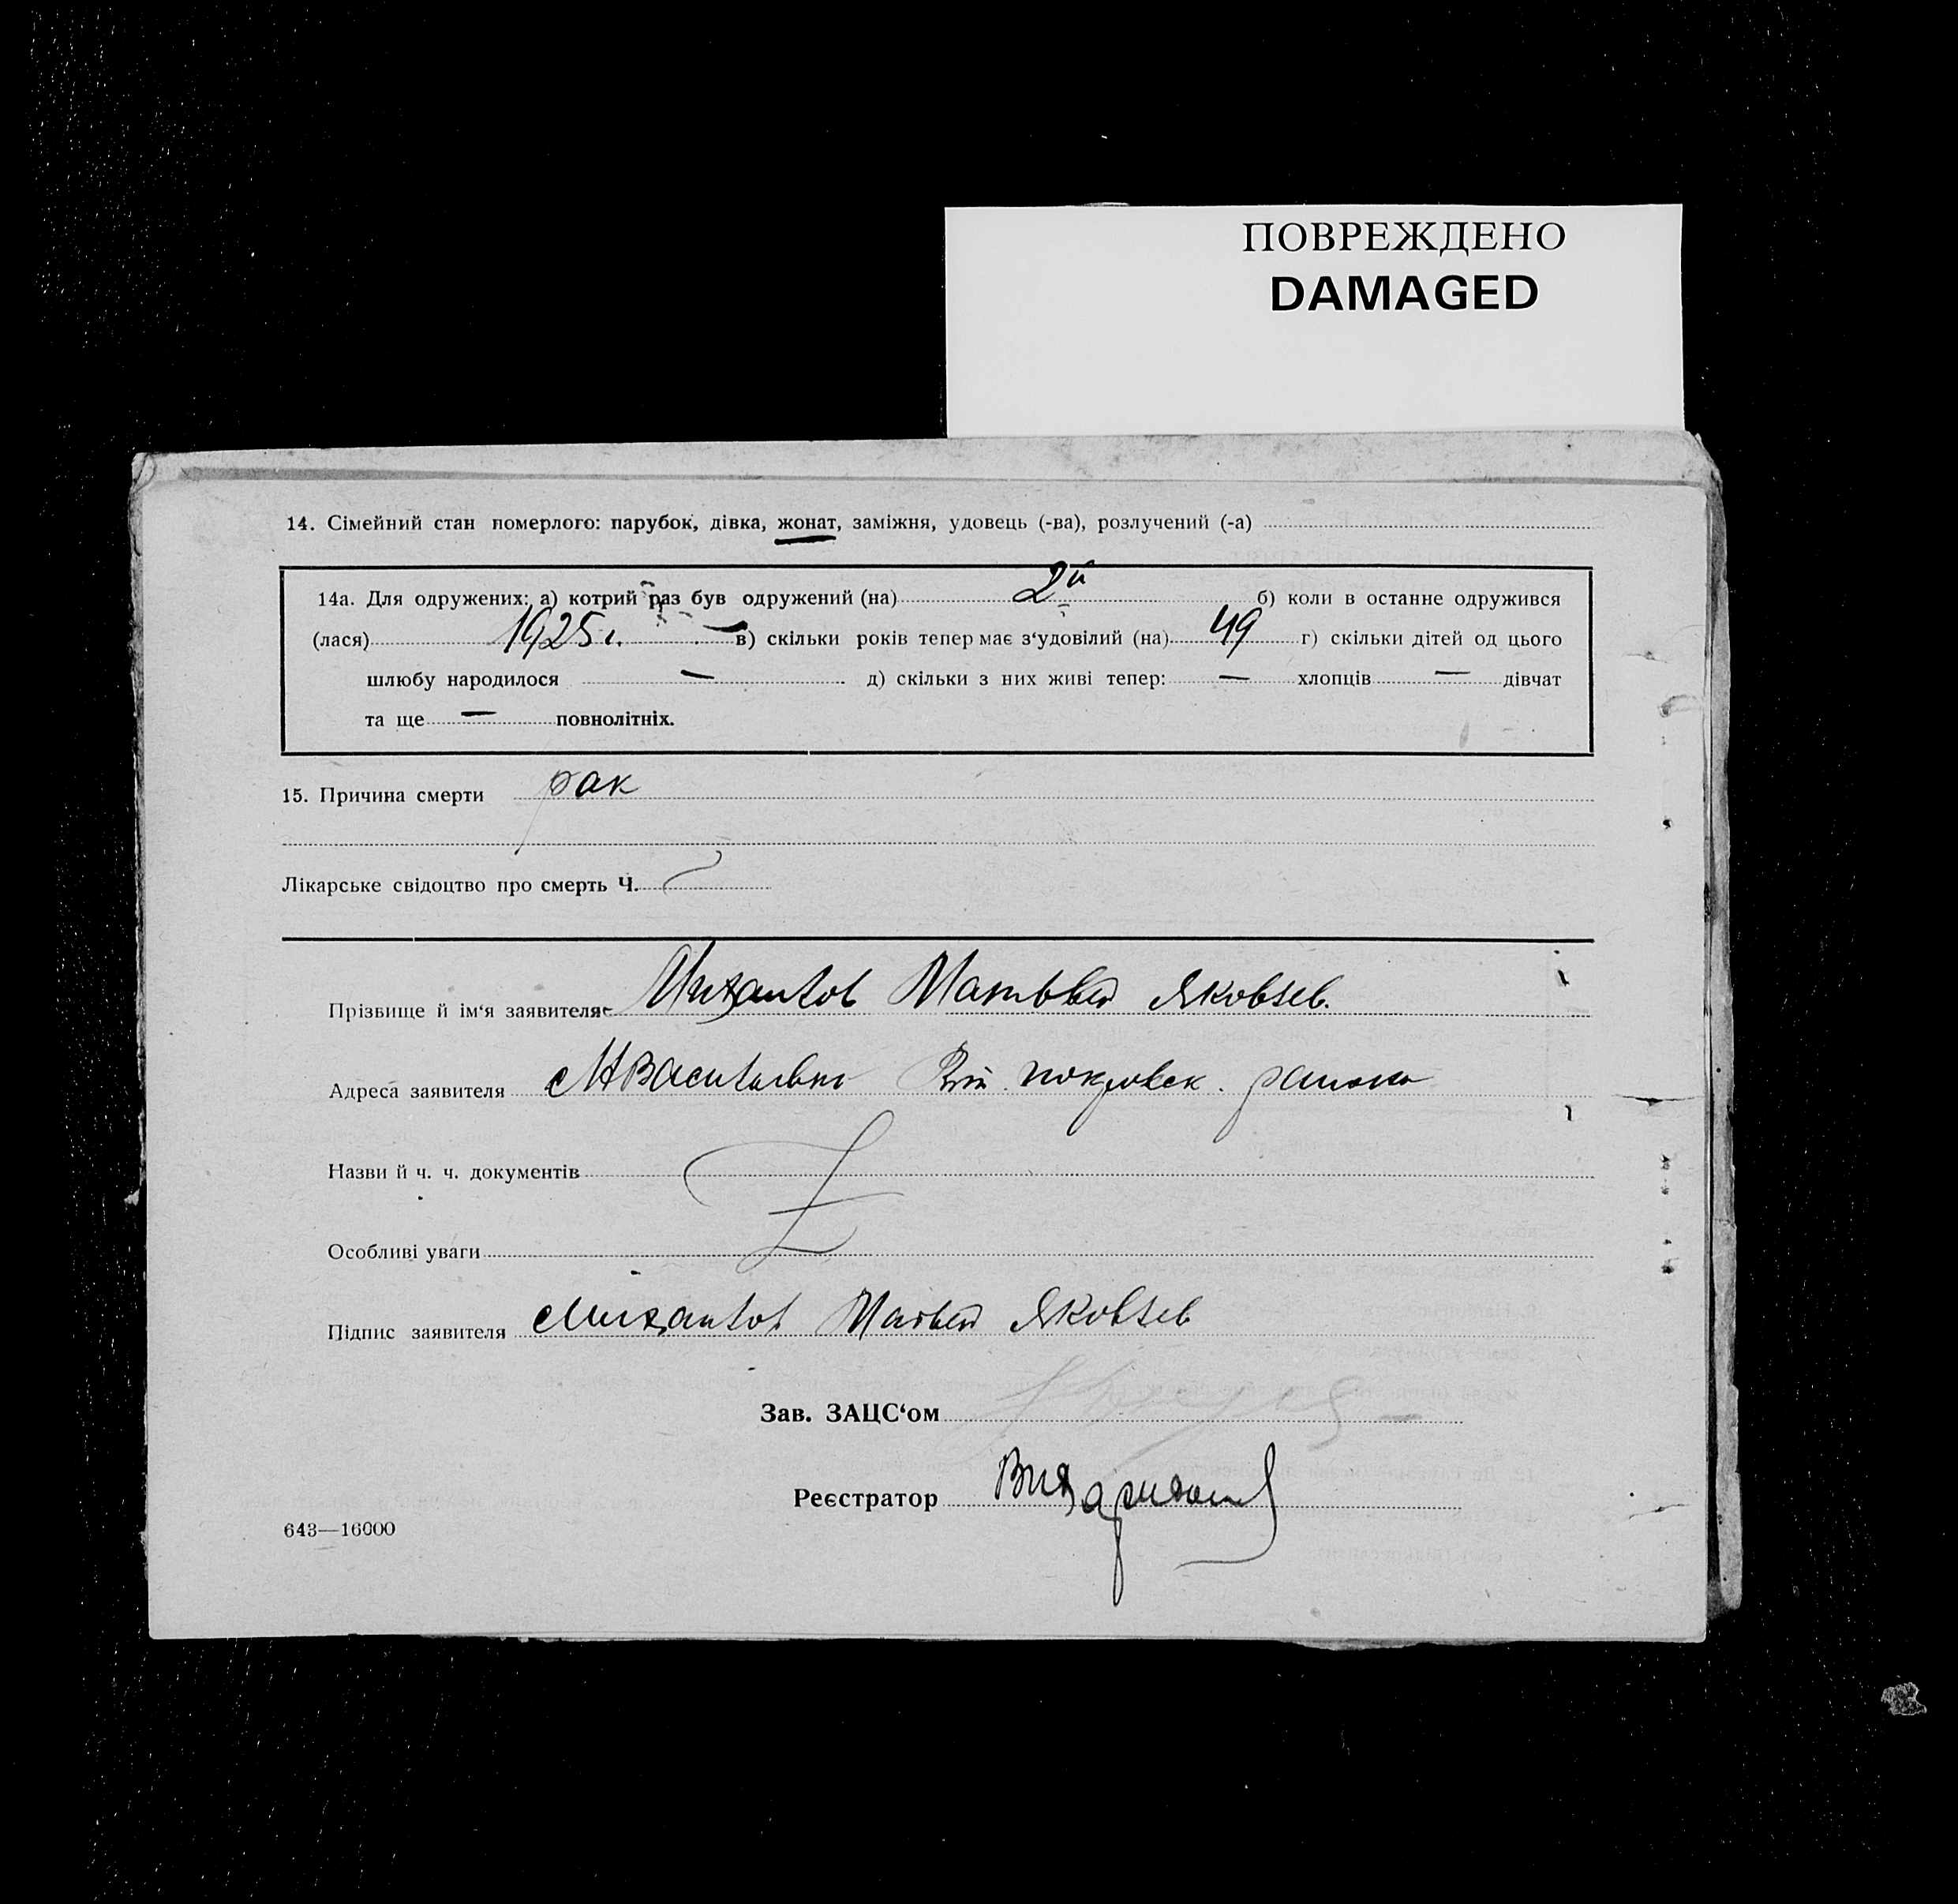 ПОВРЕЖДЕНО
DAMAGED
14. Сімейний стан померлого: парубок, дівка, жонат, заміжня, удовець (-ва), розлучений (-а)
14а. Для одружених: а) котрий раз був одружений (на) 2й б) коли в останне одружився
(лася) 1925 г. в) скільки років тепер має з‘удовілий (на) 49 г) скільки дітей од цього
шлюбу народилося — д) скільки з них живі тепер: — хлопців — дівчат
та ще — повнолітніх.
15. Причина смерти рак
Лікарське свідоцтво про смерть Ч.
Прізвище й ім‘я заявителя Матвей Яковлев.
Адреса заявителя покровск. району
Назви й ч. ч. документів
Особливі уваги
Підпис заявителя Матвей Яковлев
Зав. ЗАЦС‘ом
Реєстратор
643—16000